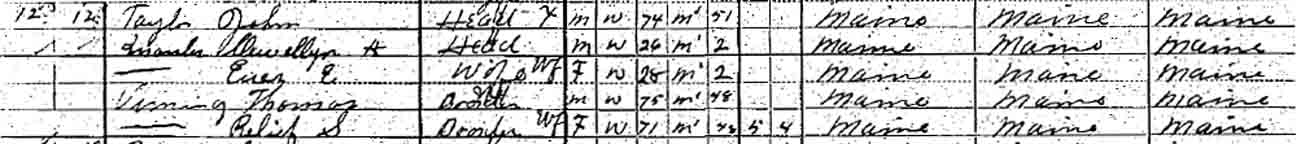 12 12 Taylor John Head m w 74 m 51 Maine Maine Maine
Llewellyn A Head m w 26 m 2 Maine Maine Maine
— E. Wife Wf F w 28 m 2 Maine Maine Maine
Vining Thomas m w 75 m 48 Maine Maine Maine
— Relief S Wf F w 71 m 48 5 4 Maine Maine Maine